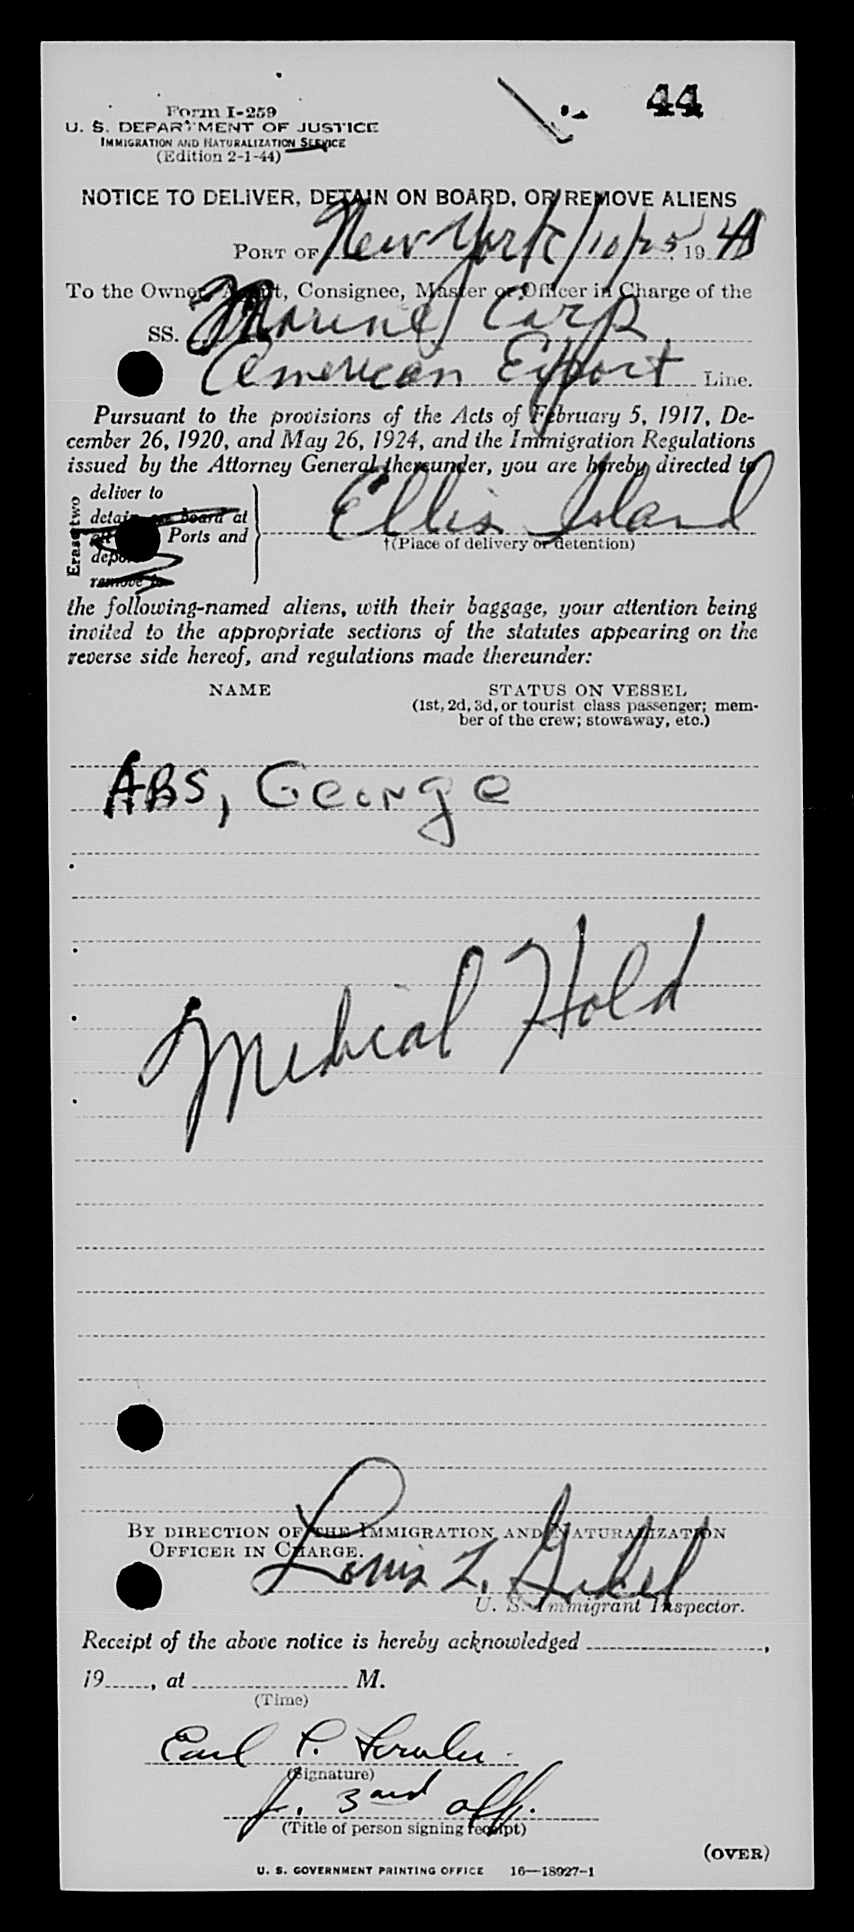 44
Form I-259
U. S. DEPARTMENT OF JUSTICE
IMMIGRATION AND NATURALIZATION SERVICE
(Edition 2-1-44)
NOTICE TO DELIVER, DETAIN ON BOARD, OR REMOVE ALIENS
PORT OF New York / 10/25 19 48
To the Owner, Agent, Consignee, Master or Officer in Charge of the
SS. Marine Carp
American Export Line.
Pursuant to the provisions of the Acts of February 5, 1917, De-
cember 26, 1920, and May 26, 1924, and the Immigration Regulations
issued by the Attorney General thereunder, you are hereby directed to
Erase two
deliver to
detain on board at
all Ports and
deport
remove to
Ellis Island
†(Place of delivery or detention)
the following-named aliens, with their baggage, your attention being
invited to the appropriate sections of the statutes appearing on the
reverse side hereof, and regulations made thereunder:
NAME STATUS ON VESSEL
(1st, 2d, 3d, or tourist class passenger; mem-
ber of the crew; stowaway, etc.)
ABS, George
Medical Hold
BY DIRECTION OF THE IMMIGRATION AND NATURALIZATION
OFFICER IN CHARGE.
Louis L.
U. S. Immigrant Inspector.
Receipt of the above notice is hereby acknowledged ,
19 , at M.
(Time)
Earl P.
(Signature)
J. 3rd off.
(Title of person signing receipt)
(OVER)
U. S. GOVERNMENT PRINTING OFFICE 16—18927-1